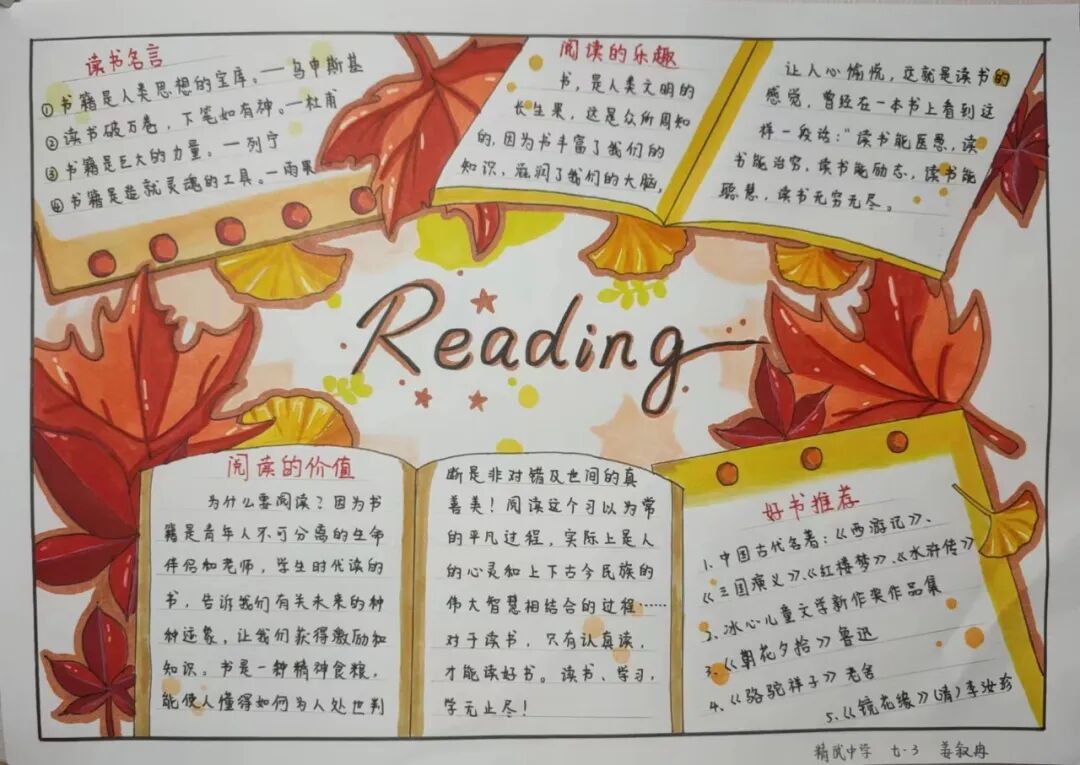 读书名言
①书籍是人类思想的宝库。—乌申斯基
②读书破万卷，下笔如有神。—杜甫
③书籍是巨大的力量。—列宁
④书籍是造就灵魂的工具。—雨果
阅读的乐趣
书，是人类文明的
长生果，这是众所周知
的，因为书丰富了我们的
知识，滋润了我们的大脑，
让人心愉悦，这就是读书的
感觉，曾经在一本书上看到这
样一段话：“读书能医愚，读
书能治穷，读书能励志，读书能
聪慧，读书无穷无尽。
Reading
阅读的价值
为什么要阅读？因为书
籍是青年人不可分离的生命
伴侣和老师，学生时代读的
书，告诉我们有关未来的种
种迹象，让我们获得激励和
知识。书是一种精神食粮，
能使人懂得如何为人处世判
断是非对错及世间的真
善美！阅读这个习以为常
的平凡过程，实际上是人
的心灵和上下古今民族的
伟大智慧相结合的过程……
对于读书，只有认真读，
才能读好书。读书、学习，
学无止尽！
好书推荐
1.中国古代名著：《西游记》、
《三国演义》、《红楼梦》、《水浒传》
2.冰心儿童文学新作奖作品集
3.《朝花夕拾》鲁迅
4.《骆驼祥子》老舍
5.《镜花缘》(清)李汝珍
精武中学 七·3 姜叙冉